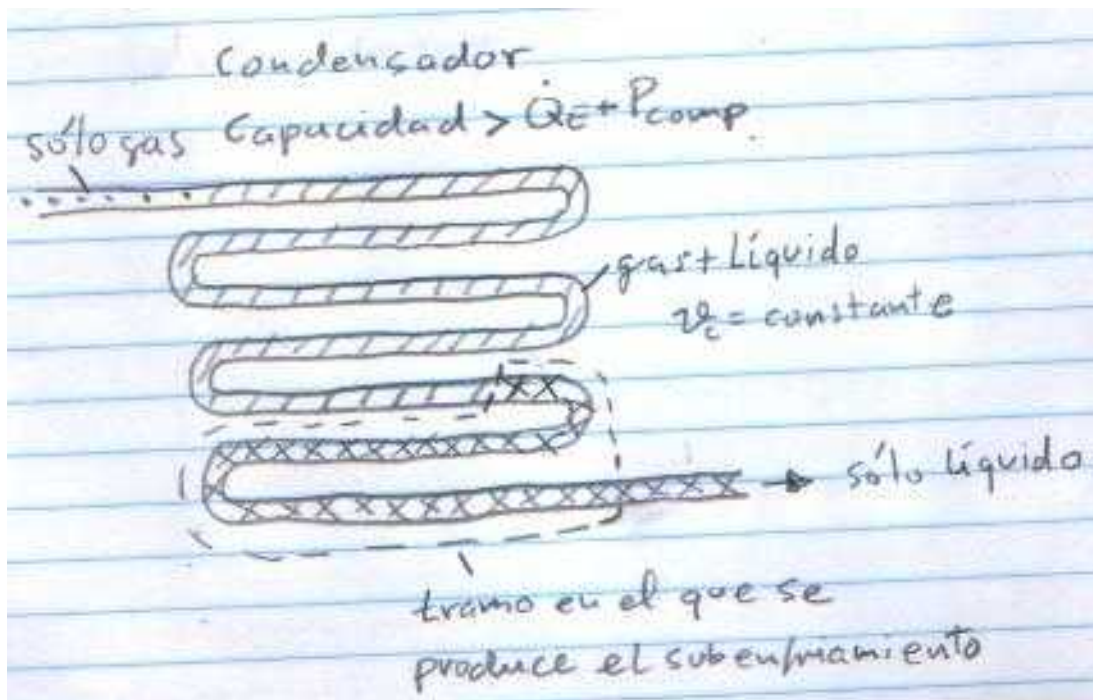 Condensador
sólo gas Capacidad > Q̇E + Pcomp.
gas + Líquido
ϑc = constante
sólo líquido
tramo en el que se
produce el subenfriamiento